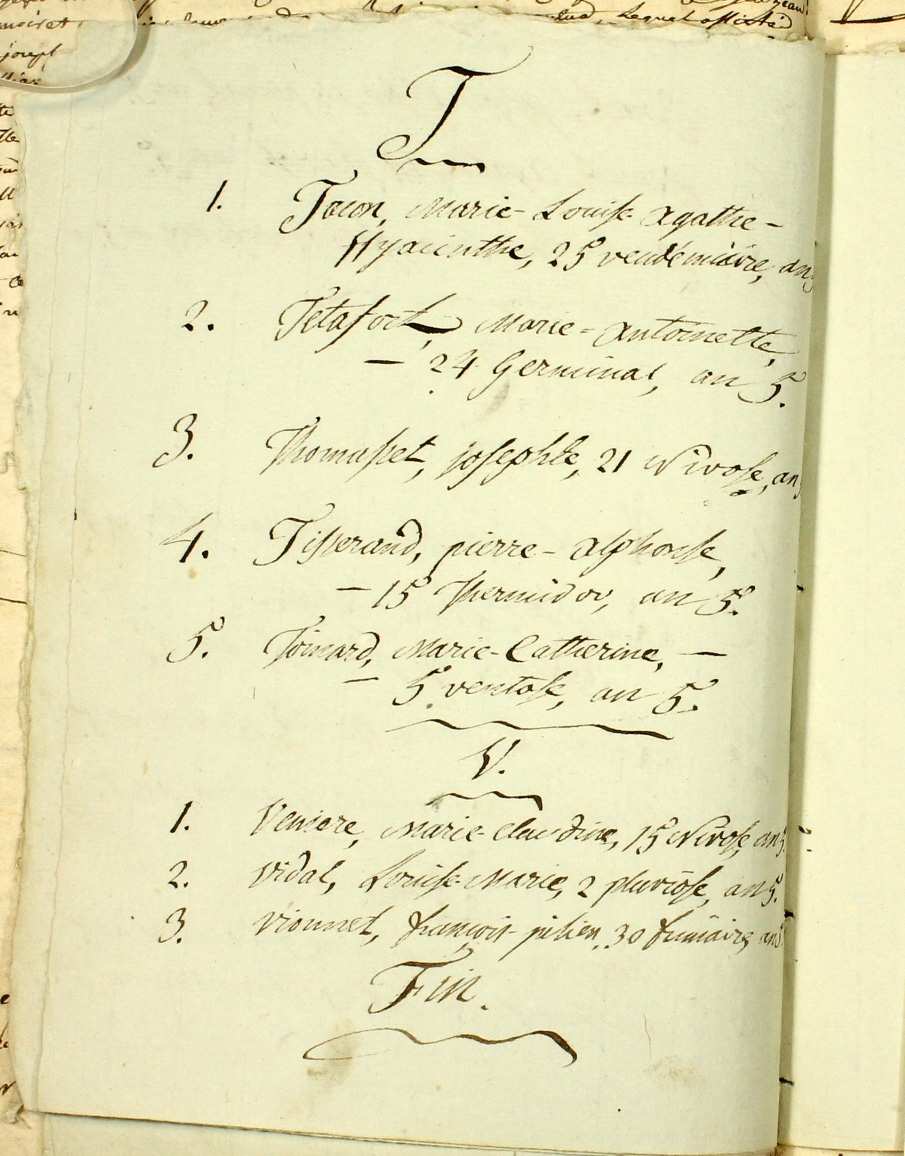 T
1. Tacon, Marie-Louise agathe-
Hyacinthe, 25 vendémiaire, an 5
2. Tetafort, Marie-antoinette,
— 24 Germinal, an 5.
3. Thomasset, josephte, 21 Nivose, an
4. Tisserand, pierre-alphonse,
— 15 Thermidor, an 5.
5. Toinard, Marie-Catherine, —
5 ventose, an 5.
V.
1. Marie-claudine, 15 Nivose, an 5.
2. Vidal, Louise-Marie, 2 pluviôse, an 5.
3. Vionnet, françois-julien, 30 frimaire, an 5
Fin.